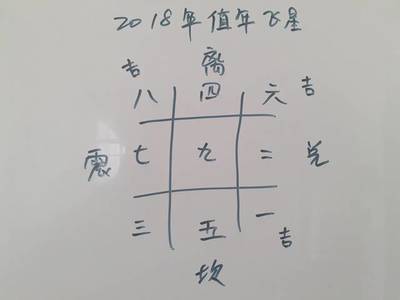 2018年值年飞星
吉 离
八 四 六 吉
震 七 九 二 兑
三 五 一 吉
坎